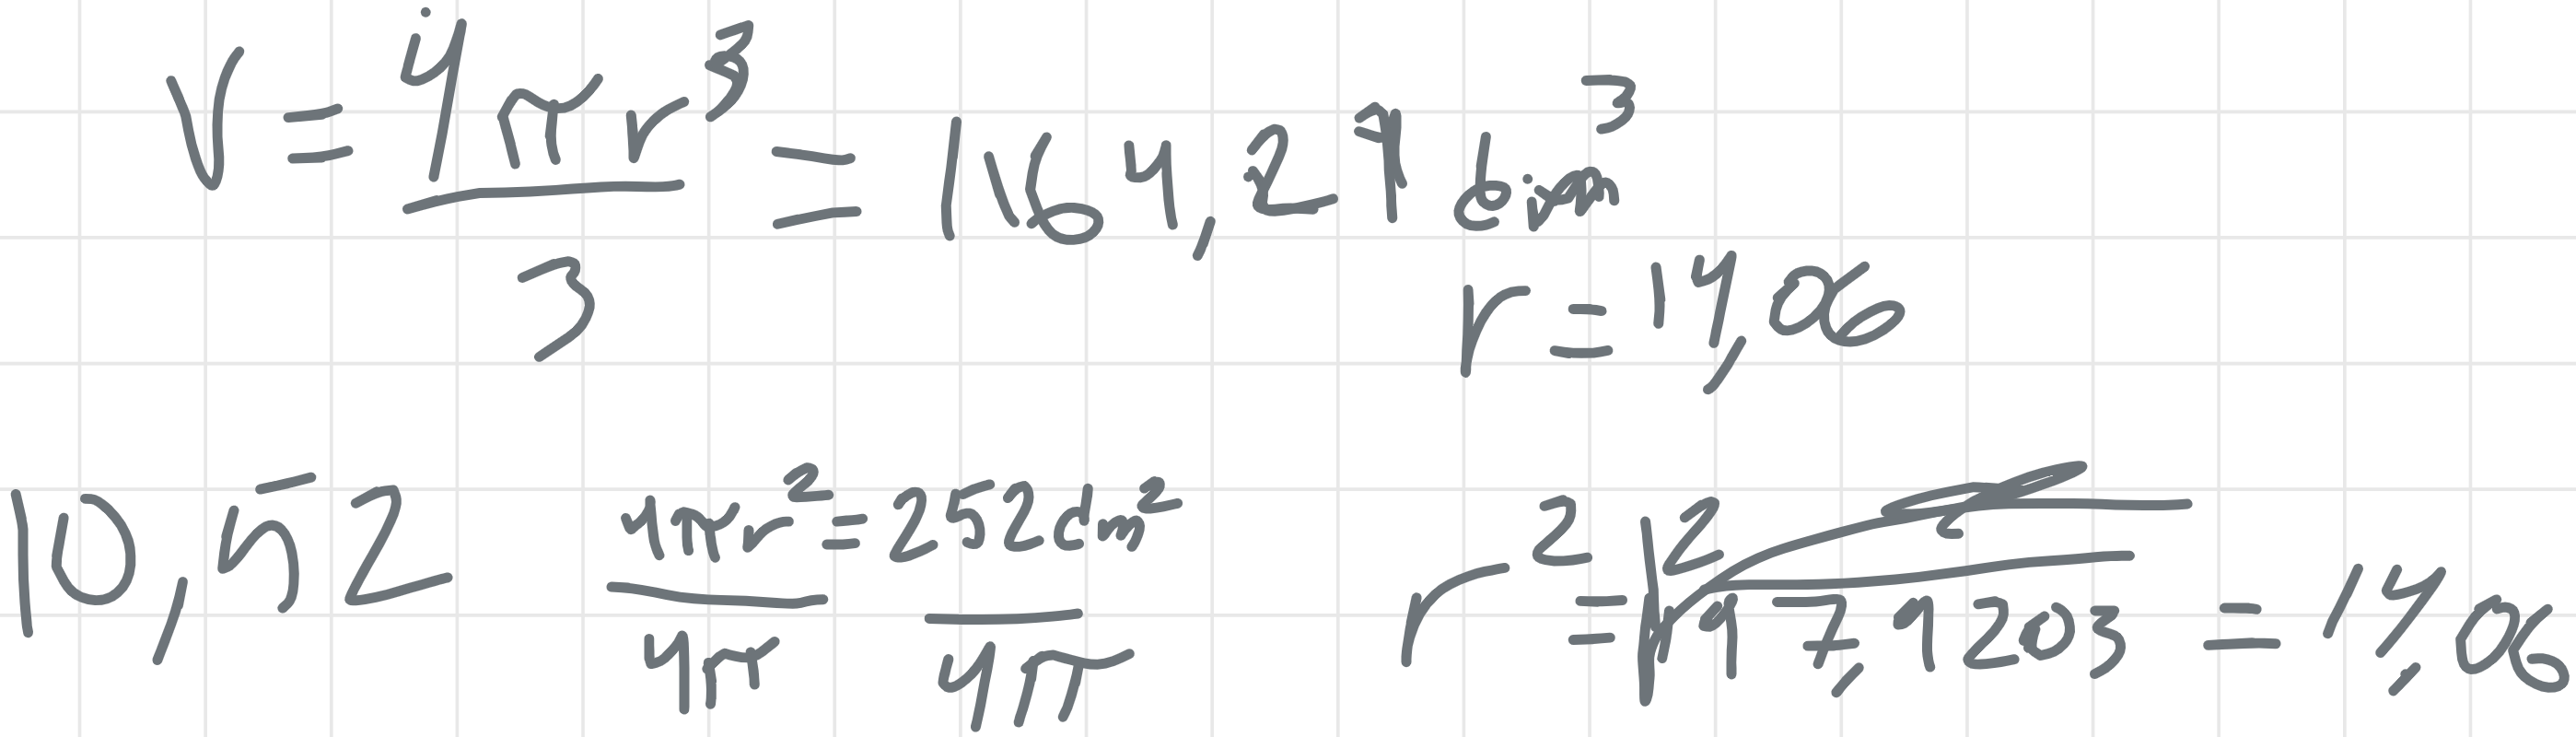 V = 4πr³ / 3 = 1164,29 dm³
r = 14,06
10,52 4πr² / 4π = 252 dm² / 4π r² = √197,9203 = 14,06